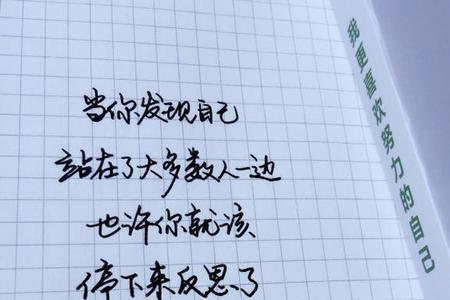 当你发现自己
站在了大多数人一边
也许你就该
停下来反思了
我更喜欢努力的自己